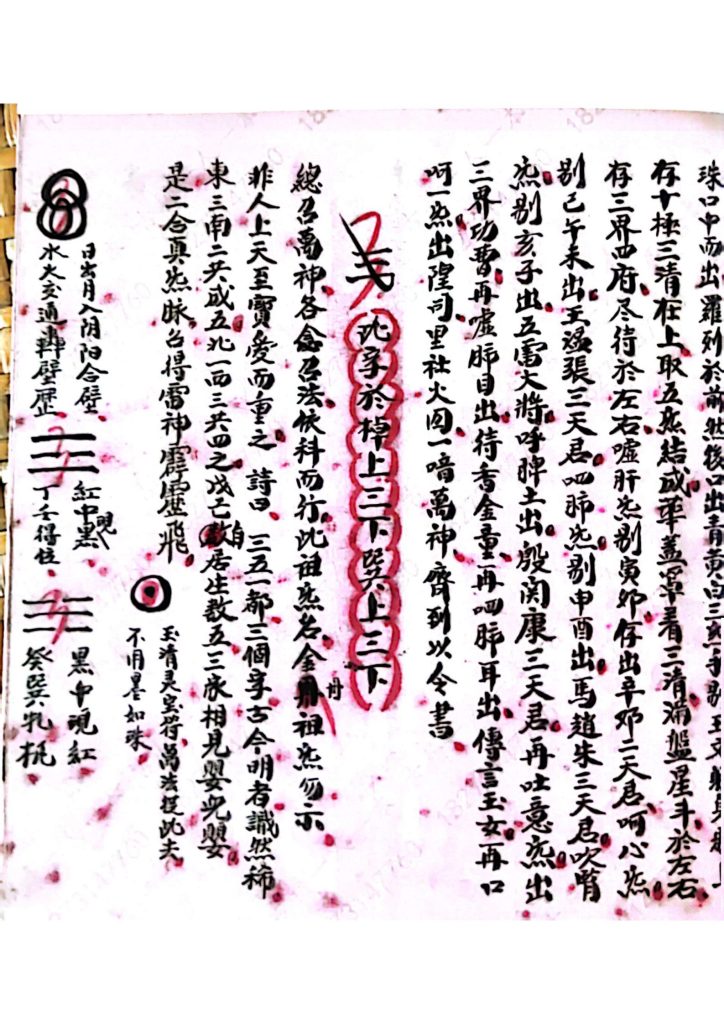 珠口中而出羅列於前然後口出青黄白三
存十極三清在上取五炁結成華盖罩着三清满盤星斗於左右
存三界四府尽待於左右嘘肝炁剔寅夘存出辛邓二天君呵心炁
剔巳午未出王温張三天君呬肺炁剔申酉出馬趙朱三天君吹腎
炁剔亥子出五雷大將呼脾土出殷関康三天君再吐意炁出
三界功曹再嘘肺目出待香金童再呬肺耳出傳言玉女再口
呵一炁出隍司里社火囘一喑萬神齊列以令書
此字於棹上三下巽上三下
總召萬神各念召法依科而行此祖炁名金丹祖炁勿示
非人上天至寳愛而重之 詩曰 三五一都三個字古今明者識然稀
東三南二共成五北一西三共四之戊己自居生数五三家相見嬰兒嬰
是二合真炁脉召得雷神霹靂飛
玉清灵宝符萬法從此去
不用墨如珠
日出月入阴阳合壁
水火交通轟壁歷
紅中現黑
丁壬得位
黑中現紅
癸巽